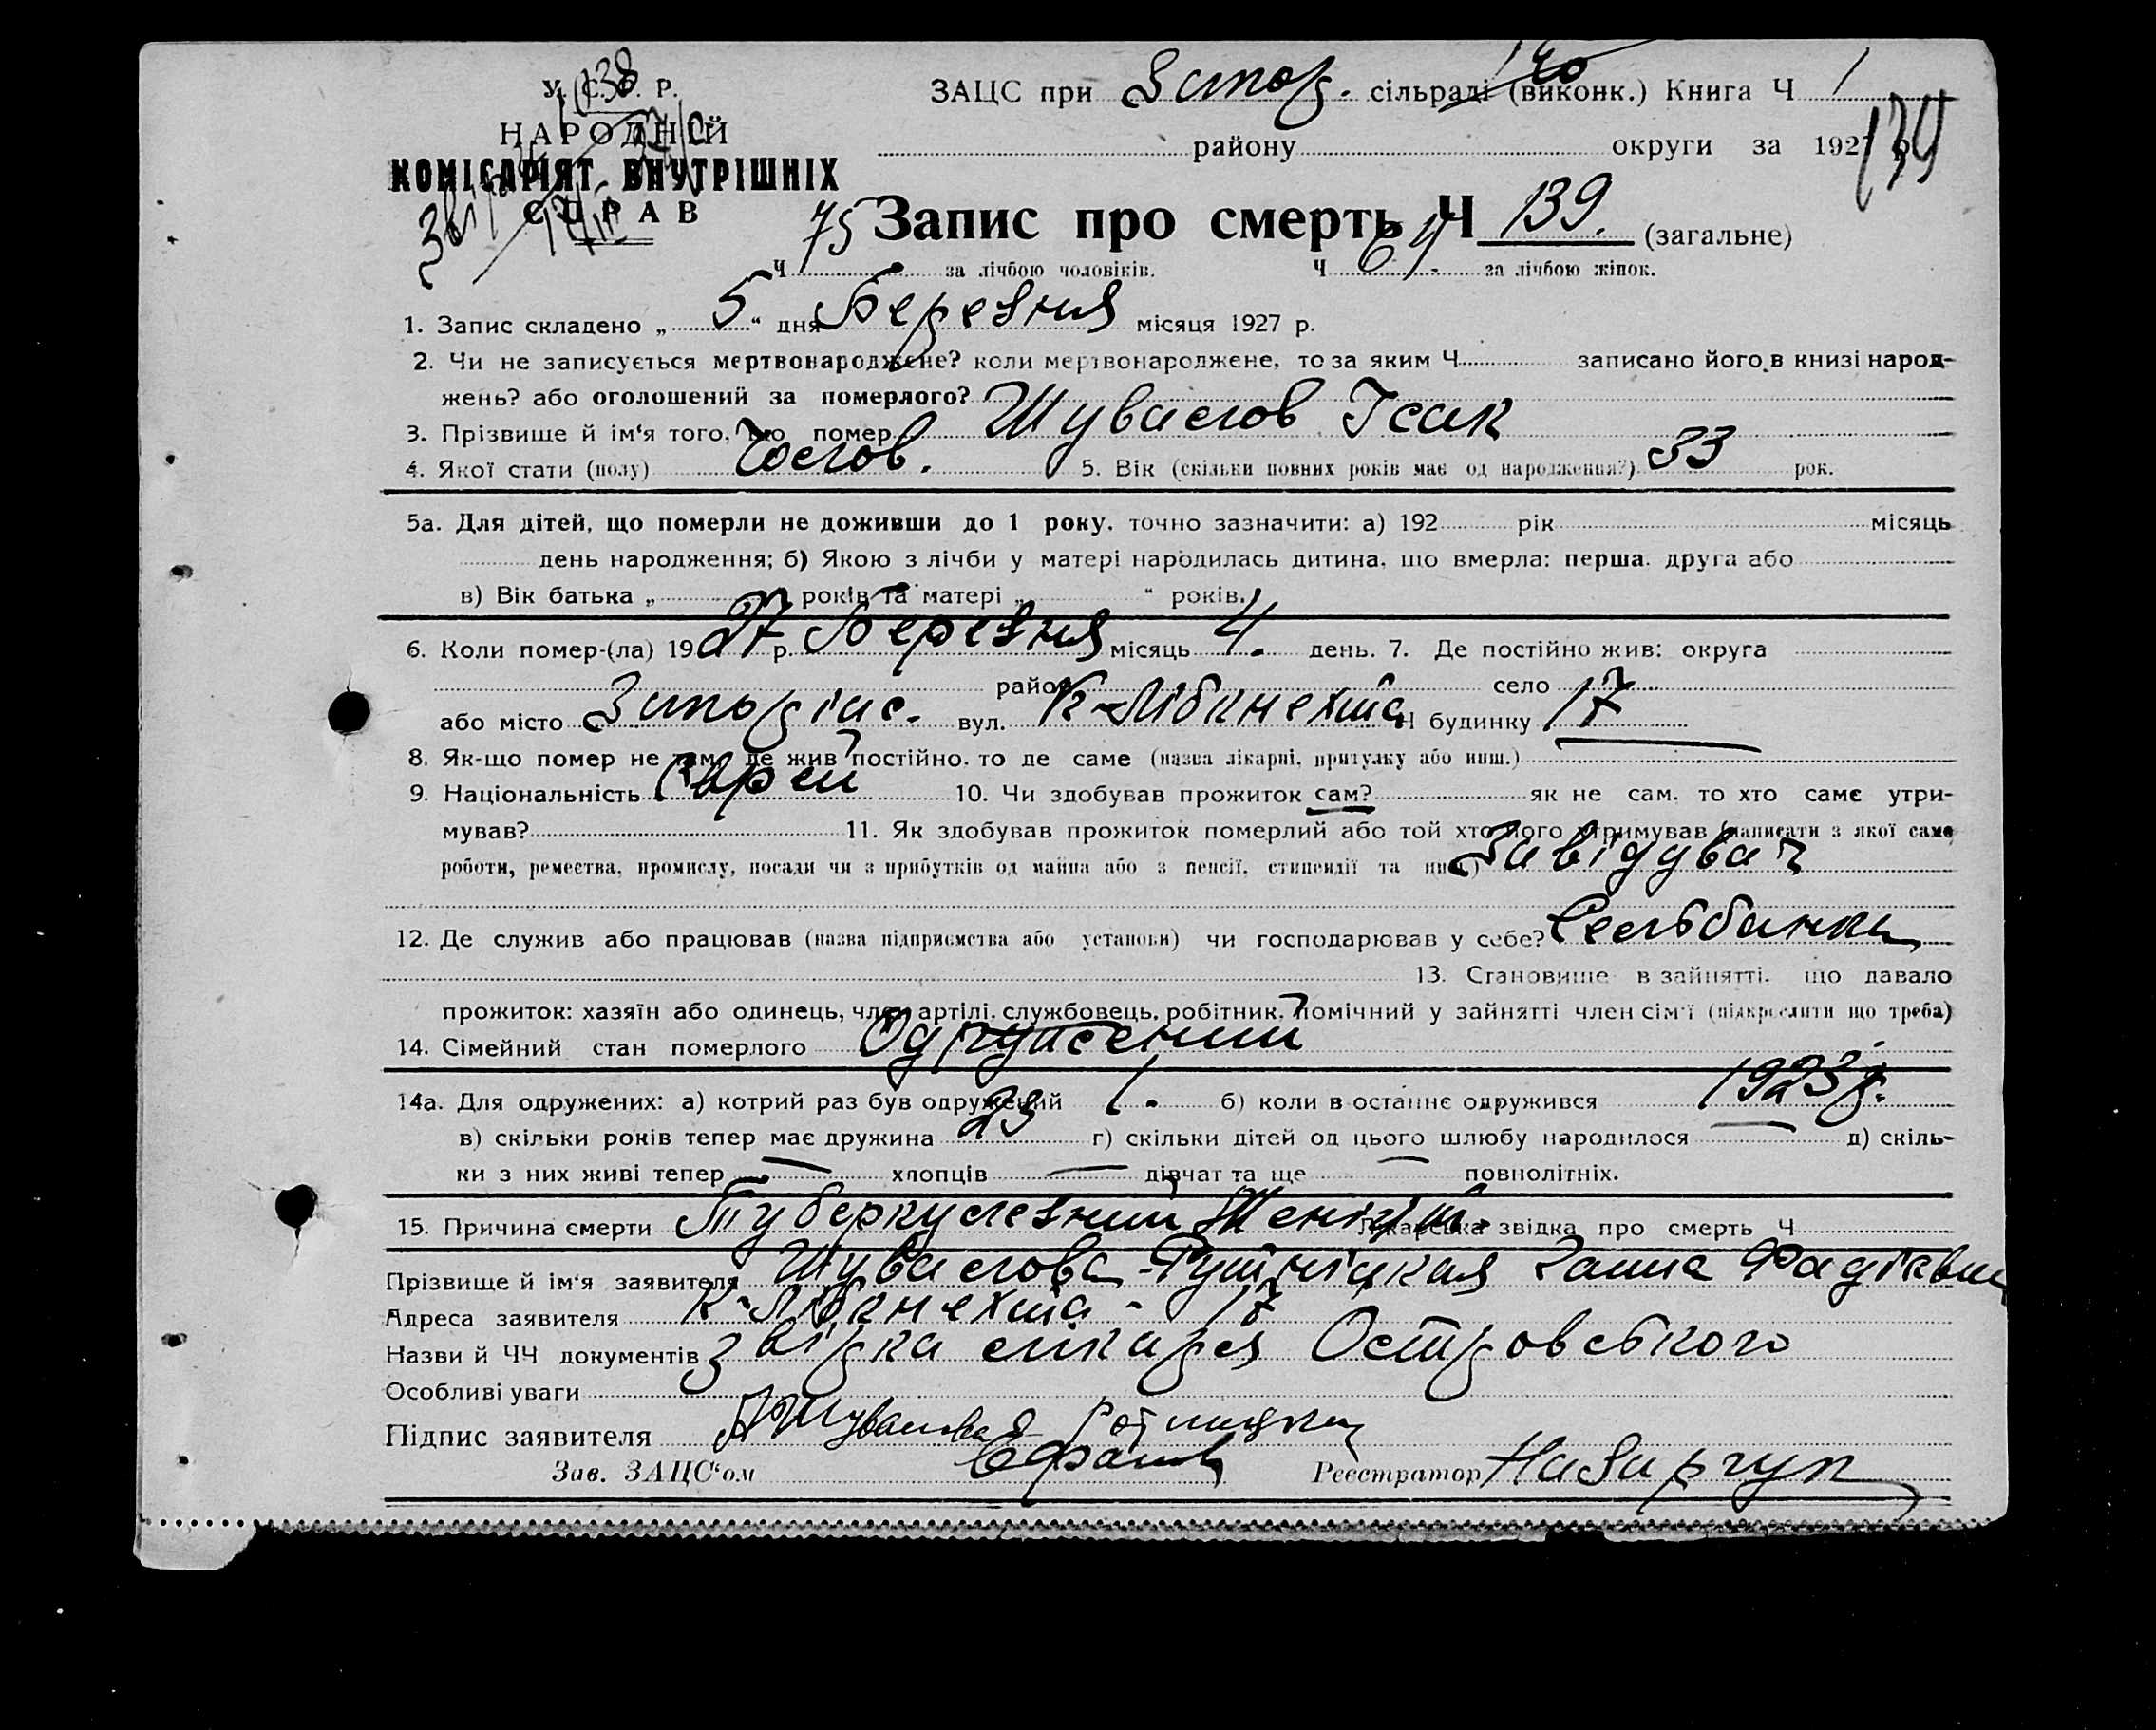 У. С. Р. Р.
НАРОДНІЙ
КОМІСАРІЯТ ВНУТРІШНІХ
СПРАВ
ЗАЦС при Запор. сільраді (виконк.) Книга Ч 1
району округи за 1927 р.
139
Запис про смерть Ч 139. (загальне)
Ч 75 за лічбою чоловіків. Ч 64. за лічбою жінок.
1. Запис складено „ 5 “ дня Березня місяця 1927 р.
2. Чи не записується мертвонароджене? коли мертвонароджене, то за яким Ч записано його в книзі народ-
жень? або оголошений за померлого?
3. Прізвище й ім‘я того, що помер Шувалов Ісак
4. Якої стати (полу) Чолов. 5. Вік (скільки повних років має од народження?) 33 рок.
5а. Для дітей, що померли не доживши до 1 року, точно зазначити: а) 192 рік місяць
день народження; б) Якою з лічби у матері народилась дитина, що вмерла: перша, друга або
в) Вік батька „ “ років та матері „ “ років.
6. Коли помер-(ла) 1927 р. Березня місяць 4. день. 7. Де постійно жив: округа
район село
або місто Запоріжж. вул. К-Лібкнехта Ч будинку 17
8. Як-що помер не там, де жив постійно, то де саме (назва лікарні, притулку або инш.)
9. Національність Єврей 10. Чи здобував прожиток сам? як не сам, то хто саме утри-
мував? 11. Як здобував прожиток померлий або той хто його утримував (написати з якої саме
роботи, ремества, промислу, посади чи з прибутків од майна або з пенсії, стипендії та инш.) Завідувач
12. Де служив або працював (назва підприємства або установи) чи господарював у себе? Сельбанка
13. Становище в зайнятті, що давало
прожиток: хазяїн або одинець, член артілі, службовець, робітник, помічний у зайнятті член сім‘ї (підкреслити що треба)
14. Сімейний стан померлого Одружений
14а. Для одружених: а) котрий раз був одружений 1. б) коли в-останнє одружився 1923 р.
в) скільки років тепер має дружина 23 г) скільки дітей од цього шлюбу народилося — д) скіль-
ки з них живі тепер — хлопців — дівчат та ще — повнолітніх.
15. Причина смерти Туберкулезний Менінгіт. Лікарська звідка про смерть Ч
Прізвище й ім‘я заявителя Шувалова
Адреса заявителя К-Лібкнехта - 17
Назви й ЧЧ документів звідка лікаря Островського
Особливі уваги
Підпис заявителя Шувалова
Зав. ЗАЦС‘ом
Реєстратор